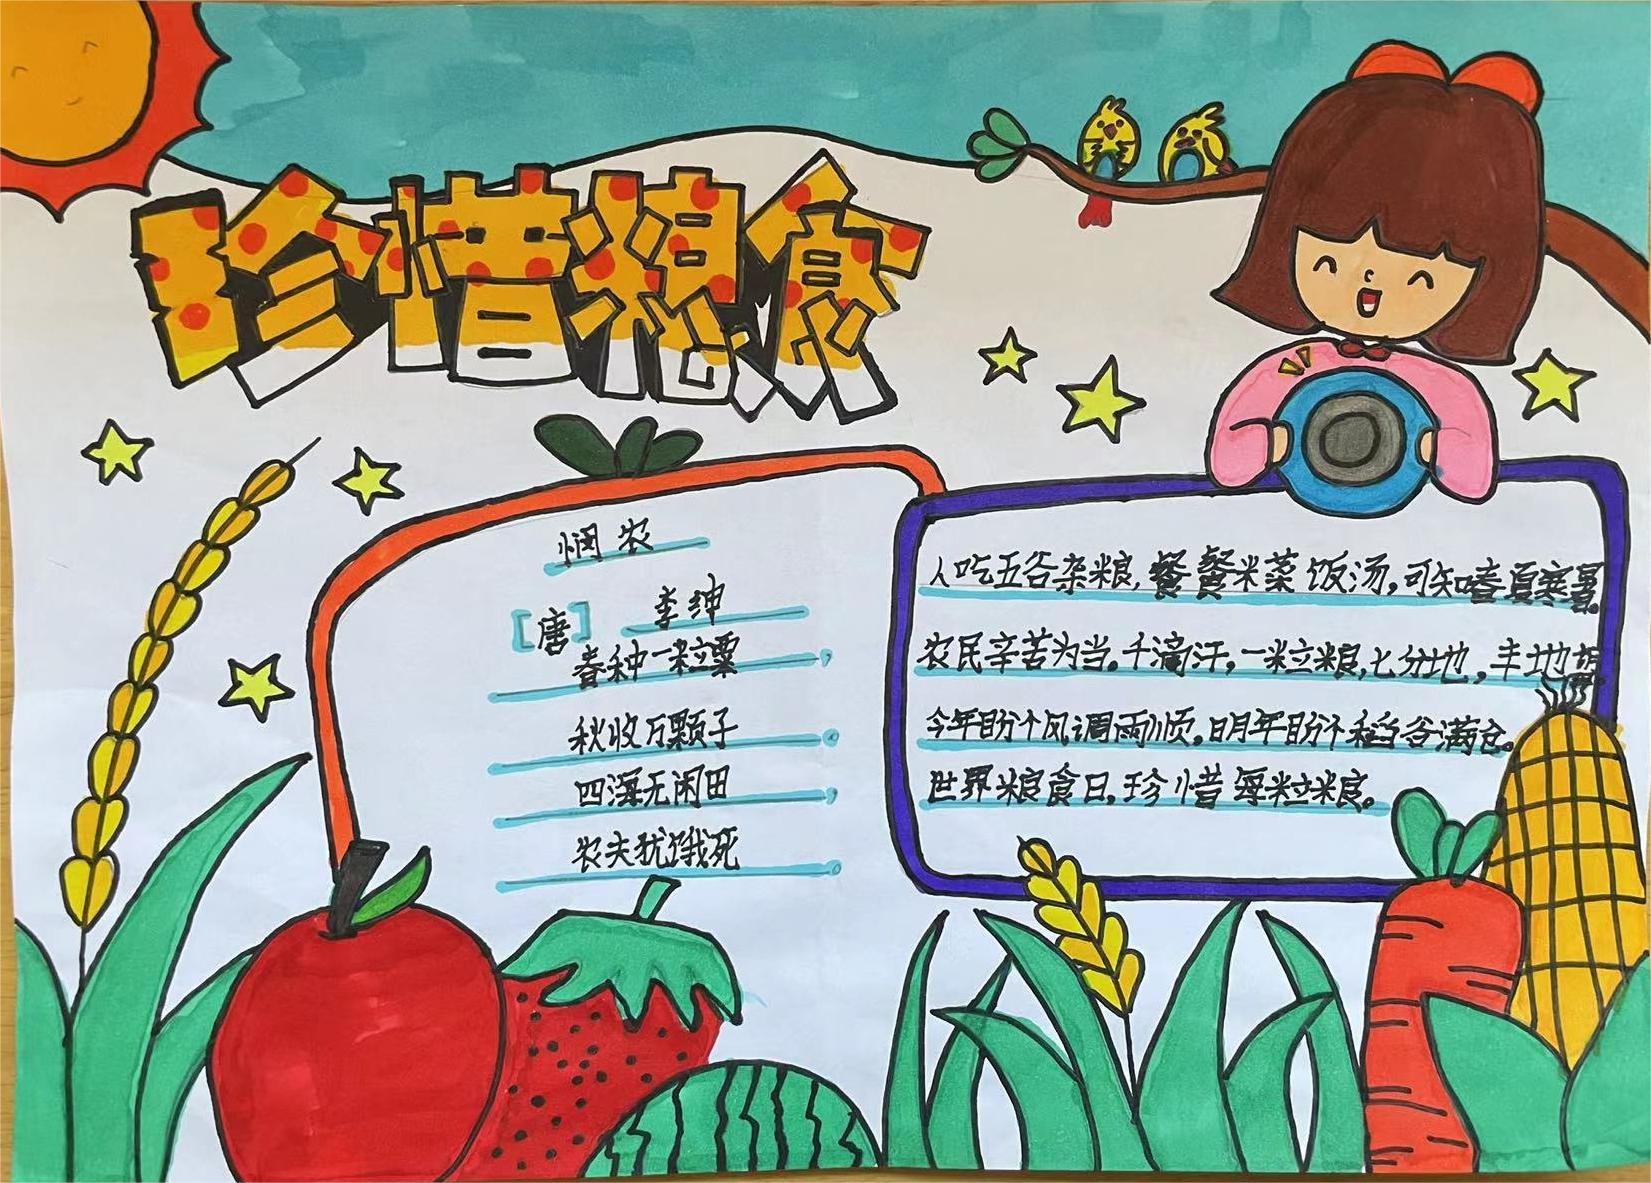 珍惜粮食
悯农
[唐] 李绅
春种一粒粟,
秋收万颗子。
四海无闲田,
农夫犹饿死。
人吃五谷杂粮,餐餐米菜饭汤,可知嗜夏寒暑。
农民辛苦为当。千滴汗,一粒粮,七分地,丰地
今年盼个风调雨顺,明年盼个稻谷满仓。
世界粮食日,珍惜每粒粮。